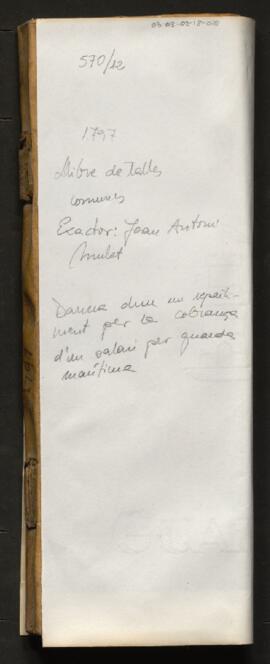 570/12
1797
Llibre de talles
comunes
Exactor: Joan Antoni
Mulet
Darrera duu un reparti-
ment per la cobrança
d'un salari per guarda
marítima